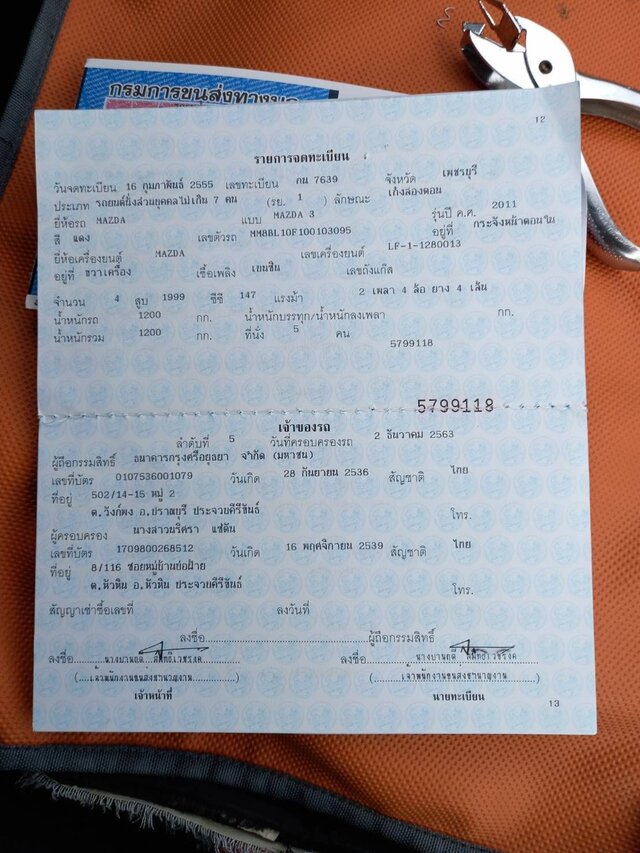 กรมการขนส่งทางบก
12
รายการจดทะเบียน
วันจดทะเบียน 16 กุมภาพันธ์ 2555 เลขทะเบียน กน 7639 จังหวัด เพชรบุรี
ประเภท รถยนต์นั่งส่วนบุคคลไม่เกิน 7 คน (รย. 1 ) ลักษณะ เก๋งสองตอน
ยี่ห้อรถ MAZDA แบบ MAZDA 3 รุ่นปี ค.ศ. 2011
สี แดง เลขตัวรถ MM8BL10F100103095 อยู่ที่ กระจังหน้าตอนใน
ยี่ห้อเครื่องยนต์ MAZDA เลขเครื่องยนต์ LF-1-1280013
อยู่ที่ ขวาเครื่อง เชื้อเพลิง เบนซิน เลขถังแก๊ส
จำนวน 4 สูบ 1999 ซีซี 147 แรงม้า 2 เพลา 4 ล้อ ยาง 4 เส้น
น้ำหนักรถ 1200 กก. น้ำหนักบรรทุก/น้ำหนักลงเพลา กก.
น้ำหนักรวม 1200 กก. ที่นั่ง 5 คน
5799118
5799118
เจ้าของรถ
ลำดับที่ 5 วันที่ครอบครองรถ 2 ธันวาคม 2563
ผู้ถือกรรมสิทธิ์ ธนาคารกรุงศรีอยุธยา จำกัด (มหาชน)
เลขที่บัตร 0107536001079 วันเกิด 28 กันยายน 2536 สัญชาติ ไทย
ที่อยู่ 502/14-15 หมู่ 2
ต.วังก์พง อ.ปราณบุรี ประจวบคีรีขันธ์ โทร.
ผู้ครอบครอง นางสาวนริศรา แซ่ตัน
เลขที่บัตร 1709800268512 วันเกิด 16 พฤศจิกายน 2539 สัญชาติ ไทย
ที่อยู่ 8/116 ซอยหมู่บ้านบ่อฝ้าย
ต.หัวหิน อ.หัวหิน ประจวบคีรีขันธ์ โทร.
สัญญาเช่าซื้อเลขที่ ลงวันที่
ลงชื่อ ผู้ถือกรรมสิทธิ์
ลงชื่อ ลงชื่อ
(....เจ้าพนักงานขนส่งชำนาญงาน....) (....เจ้าพนักงานขนส่งชำนาญงาน....)
เจ้าหน้าที่ นายทะเบียน
13